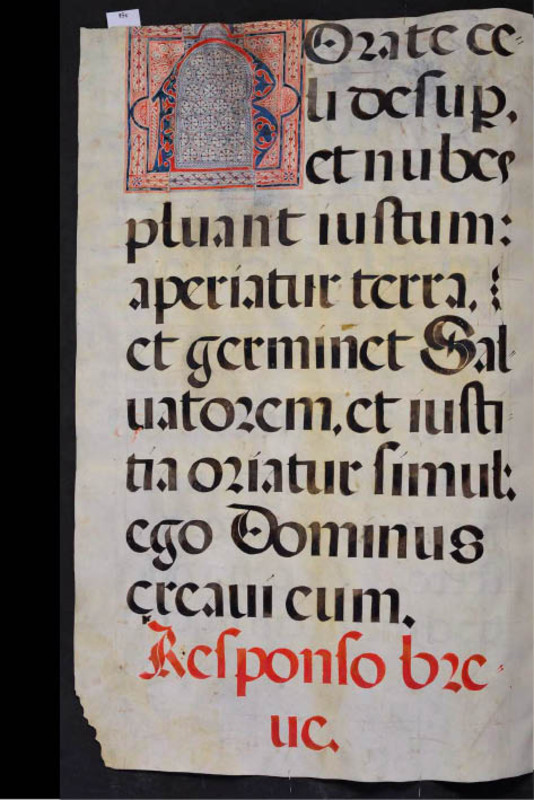 ROrate ce=
li desup,
et nubes
pluant iustum:
aperiatur terra,
et germinet Sal
uatorem, et iusti
tia oriatur simul:
ego Dominus
creaui eum.
Responso bre-
ue.